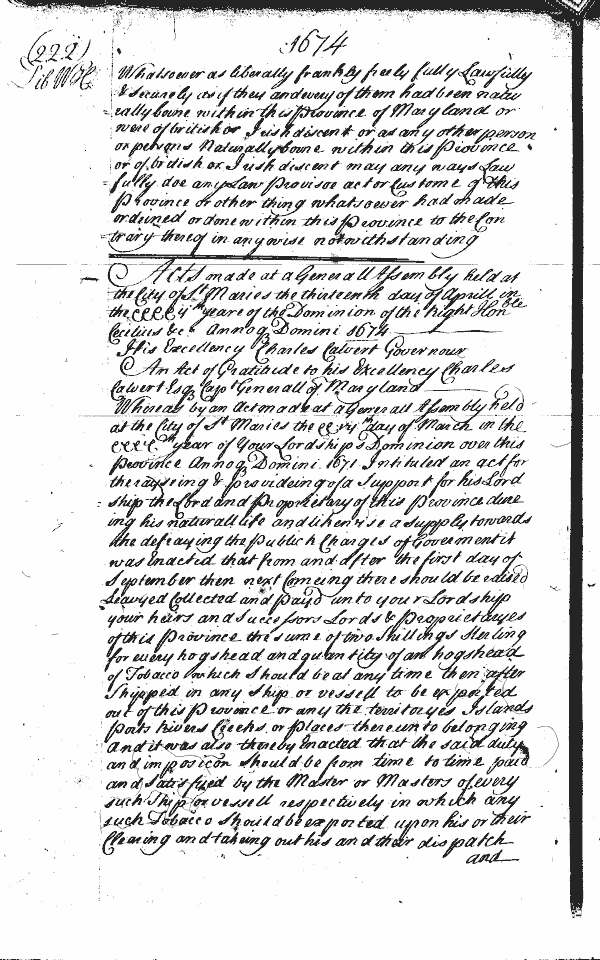 (222)
1674
Lib W H
Whatsoever as liberally frankly freely fully Lawfully
& securely as if they and every of them had been natu
rally borne within this Province of Maryland or
were of british or Irish discent or as any other person
or persons Naturally borne within this Province
or of brittish or Irish discent may any ways Law
fully doe any Law Provisoe act or Custome of this
Province or other thing whatsoever had made
ordeined or done within this Province to the Con
trary thereof in any wise notwithstanding
Acts made at a Generall Assembly held at
the City of St Maries the thirteenth day of Aprill in
the yeare of the Dominion of the Right Honble
Cecilius &c Annoq Domini 1674
His Excellency Charles Calvert Governour
An Act of Gratitude to his Excellency Charles
Calvert Esqr Capt Generall of Maryland
Whereas by an Act made at a Generall Assembly held
at the City of St Maries the day of March in the
year of Your Lordships Dominion over this
Province Annoq Domini 1671 Intituled an act for
the rayseing & provideing of a Support for his Lord
ship the Lord and Proprietary of this Province dure
ing his naturall life and likewise a supply towards
the defraying the Publick Charges of Goverment it
was Enacted that from and after the first day of
September then next Comeing there should be raised
Leavyed Collected and Payd unto your Lordship
your heirs and successors Lords & Proprietaryes
of this Province the sume of two shillings sterling
for every hogshead and quantity of an hogshead
of Tobacco which should be at any time then after
shipped in any ship or vessell to be exported
out of this Province or any the territoryes Islands
Ports Rivers Creeks or places thereunto belonging
And it was also thereby Enacted that the said duty
and imposicon should be from time to time paid
and satisfyed by the Master or Masters of every
such Ship or vessell respectively in which any
such Tobacco should be exported upon his or their
Clearing and takeing out his and their dispatch
and